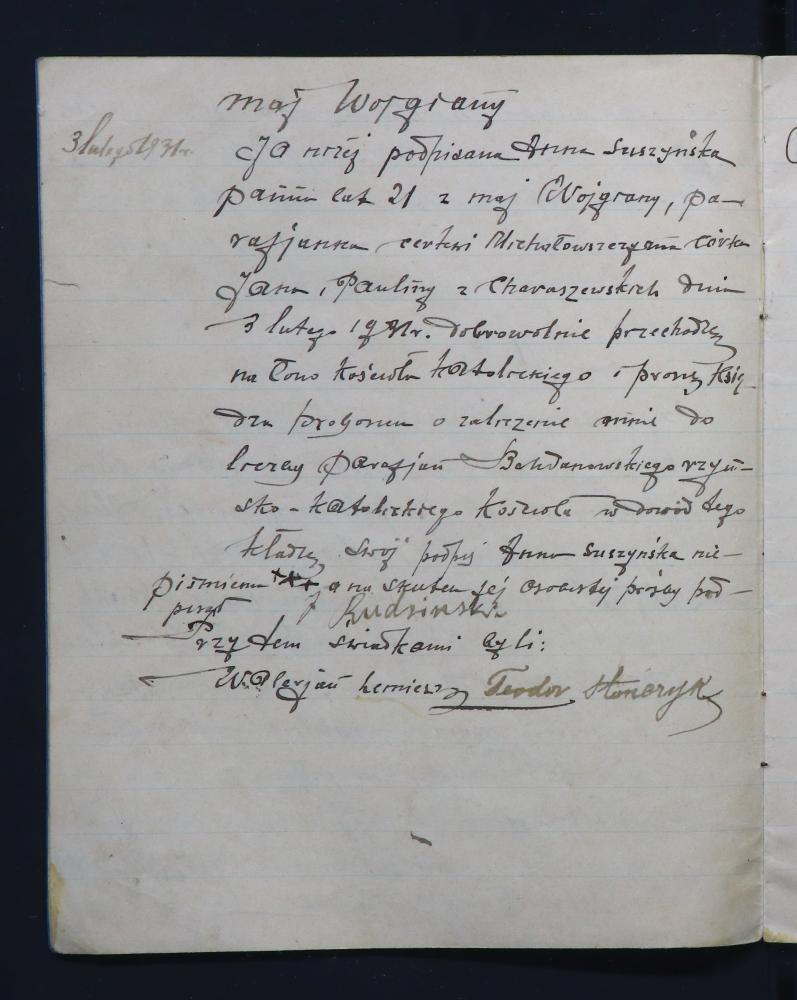 maj Wojgiany
3 lutego 1931 r.
Ja niżej podpisana Anna Suszyńska
panna lat 21 z maj Wojgiany, pa-
rafjanka cerkwi Michałowszczyzna córka
Jana i Pauliny z Charaszewskich dnia
3 lutego 1931 r. dobrowolnie przechodzę
na łono Kościoła Katolickiego i proszę Księ-
dza proboszcza o zaliczenie mnie do
liczby Parafjan Bohdanowskiego rzym-
sko-Katolickiego Kościoła w dowód tego
kładę swój podpis Anna Suszyńska nie-
piśmienna xxx a na skutek jej osobistej prośby pod-
pisał J Rudziński
Przy tem świadkami byli:
Walerjan Teodor Słończyk